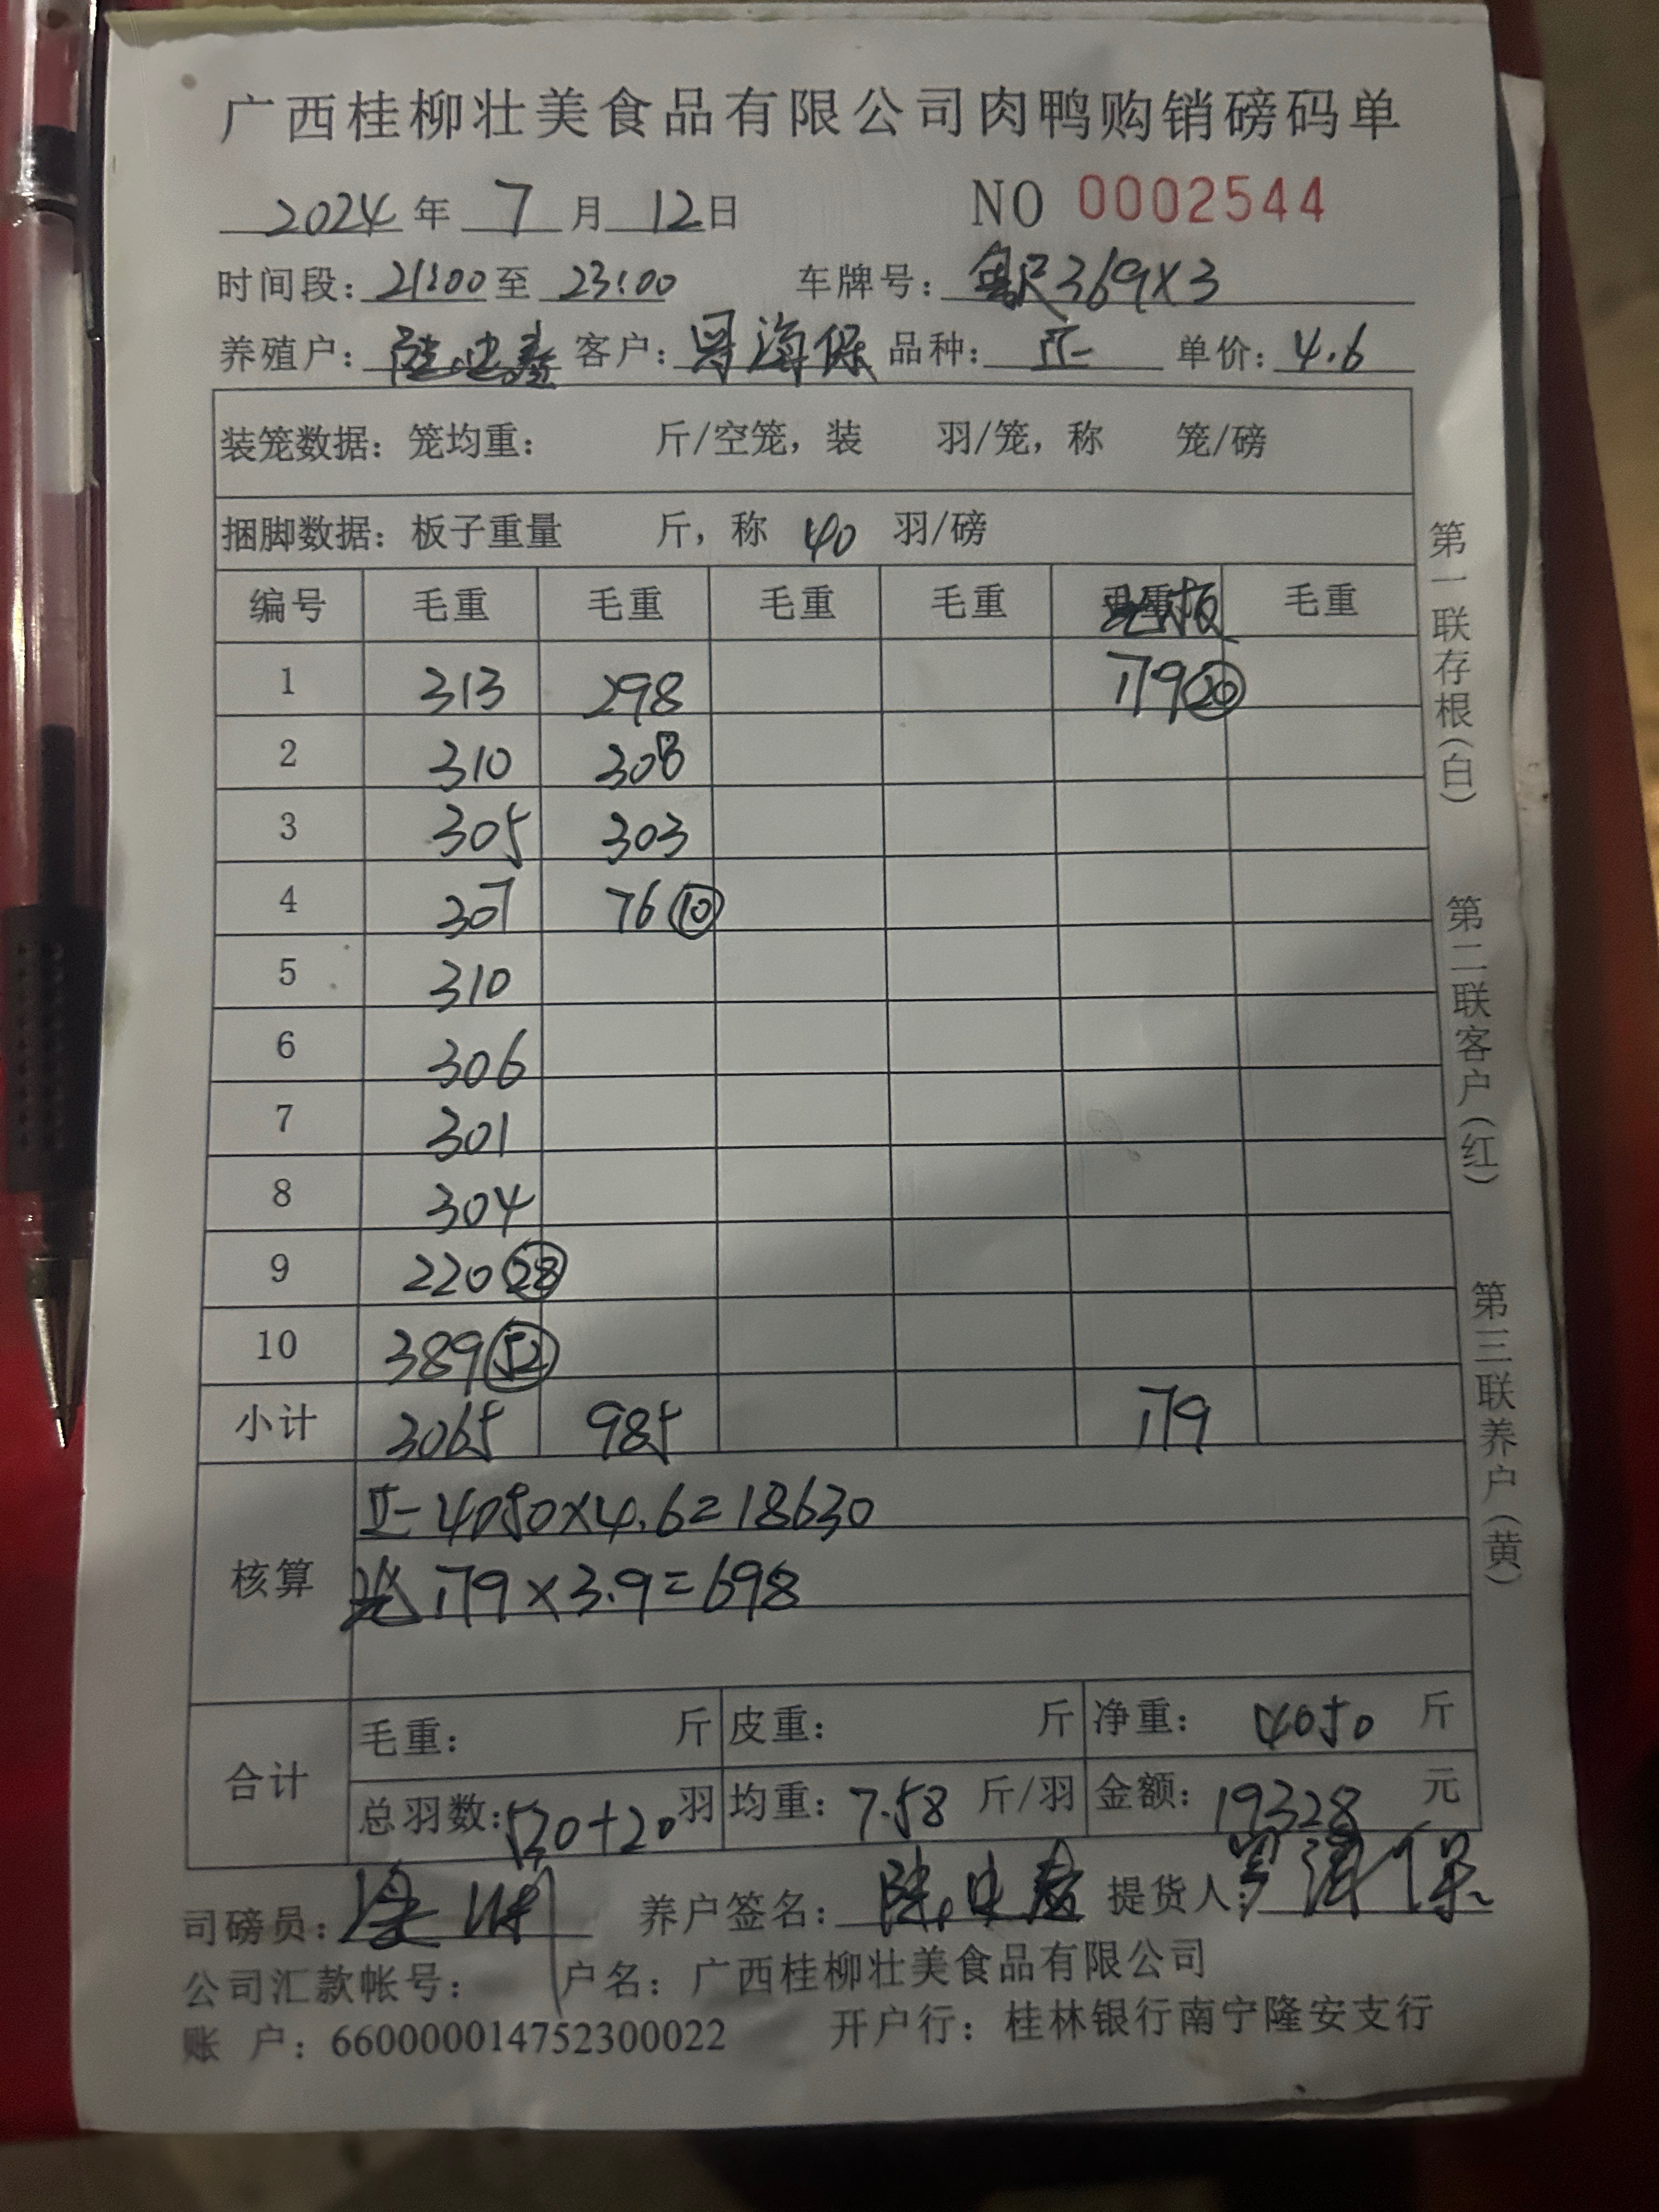 广西桂柳壮美食品有限公司肉鸭购销磅码单
2024年 7月12日 NO 0002544
时间段：21:00至 23:00 车牌号：369X3
养殖户： 客户：海保 品种：正 单价：4.6
装笼数据：笼均重： 斤/空笼，装 羽/笼，称 笼/磅
捆脚数据：板子重量 斤，称 40 羽/磅
编号 毛重 毛重 毛重 毛重 毛重
1 313 298 179 20
2 310 308
3 305 303
4 307 76 10
5 310
6 306
7 301
8 304
9 220 28
10 389 52
小计 3065 985 179
核算 正 4050×4.6=18630
179×3.9=698
合计 毛重： 斤 皮重： 斤 净重：4050 斤
总羽数：520+20羽 均重：7.58 斤/羽 金额：19328 元
司磅员： 养户签名： 提货人：海保
公司汇款帐号： 户名：广西桂柳壮美食品有限公司
账 户：660000014752300022 开户行：桂林银行南宁隆安支行
第一联存根(白) 第二联客户(红) 第三联养户(黄)